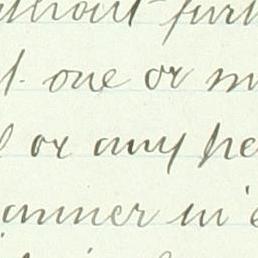 without fur
one or m
or any pe
anner in